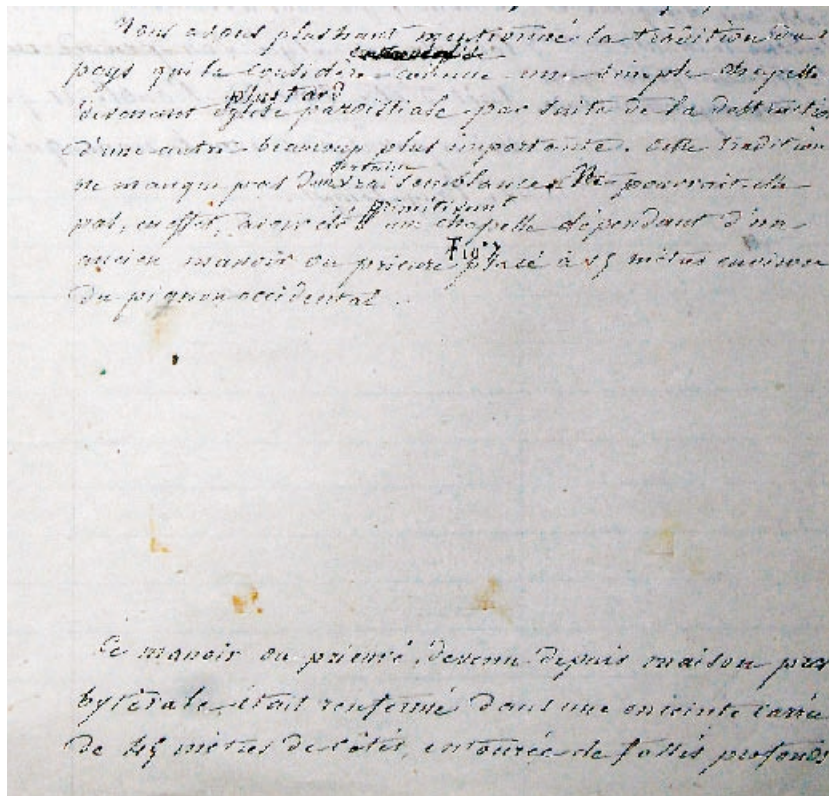 Nous avons plus haut mentionné la tradition du
pays qui la considère comme une simple chapelle
devenant plus tard église paroissiale par suite de la destruction
d'une autre beaucoup plus importante. Cette tradition
ne manque pas d'une certaine vraisemblance. Ne pourrait-elle
pas, en effet, avoir été primitivemt une chapelle dépendant d'un
ancien manoir ou prieuré Fig. 7 placé à 15 mètres environ
du pignon occidental.
Ce manoir ou prieuré, devenu depuis maison pres
bytérale, était renfermé dans une enceinte carrée
de 45 mètres de côtés, entourée de fossés profonds